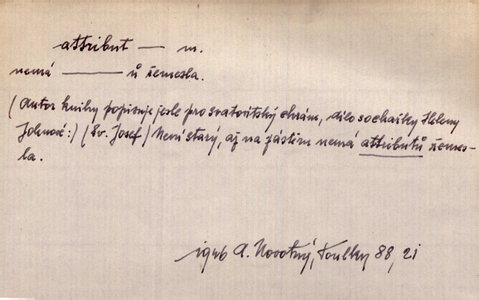 attribut — m.
nemá — ů řemesla.
(Autor knihy popisuje jesle pro svatovítský chrám, dílo sochařky Heleny
Johnové:) (Sv. Josef) Není starý, až na zástěru nemá attributů řemes-
la.
A. Novotný, Toulky 88, 21